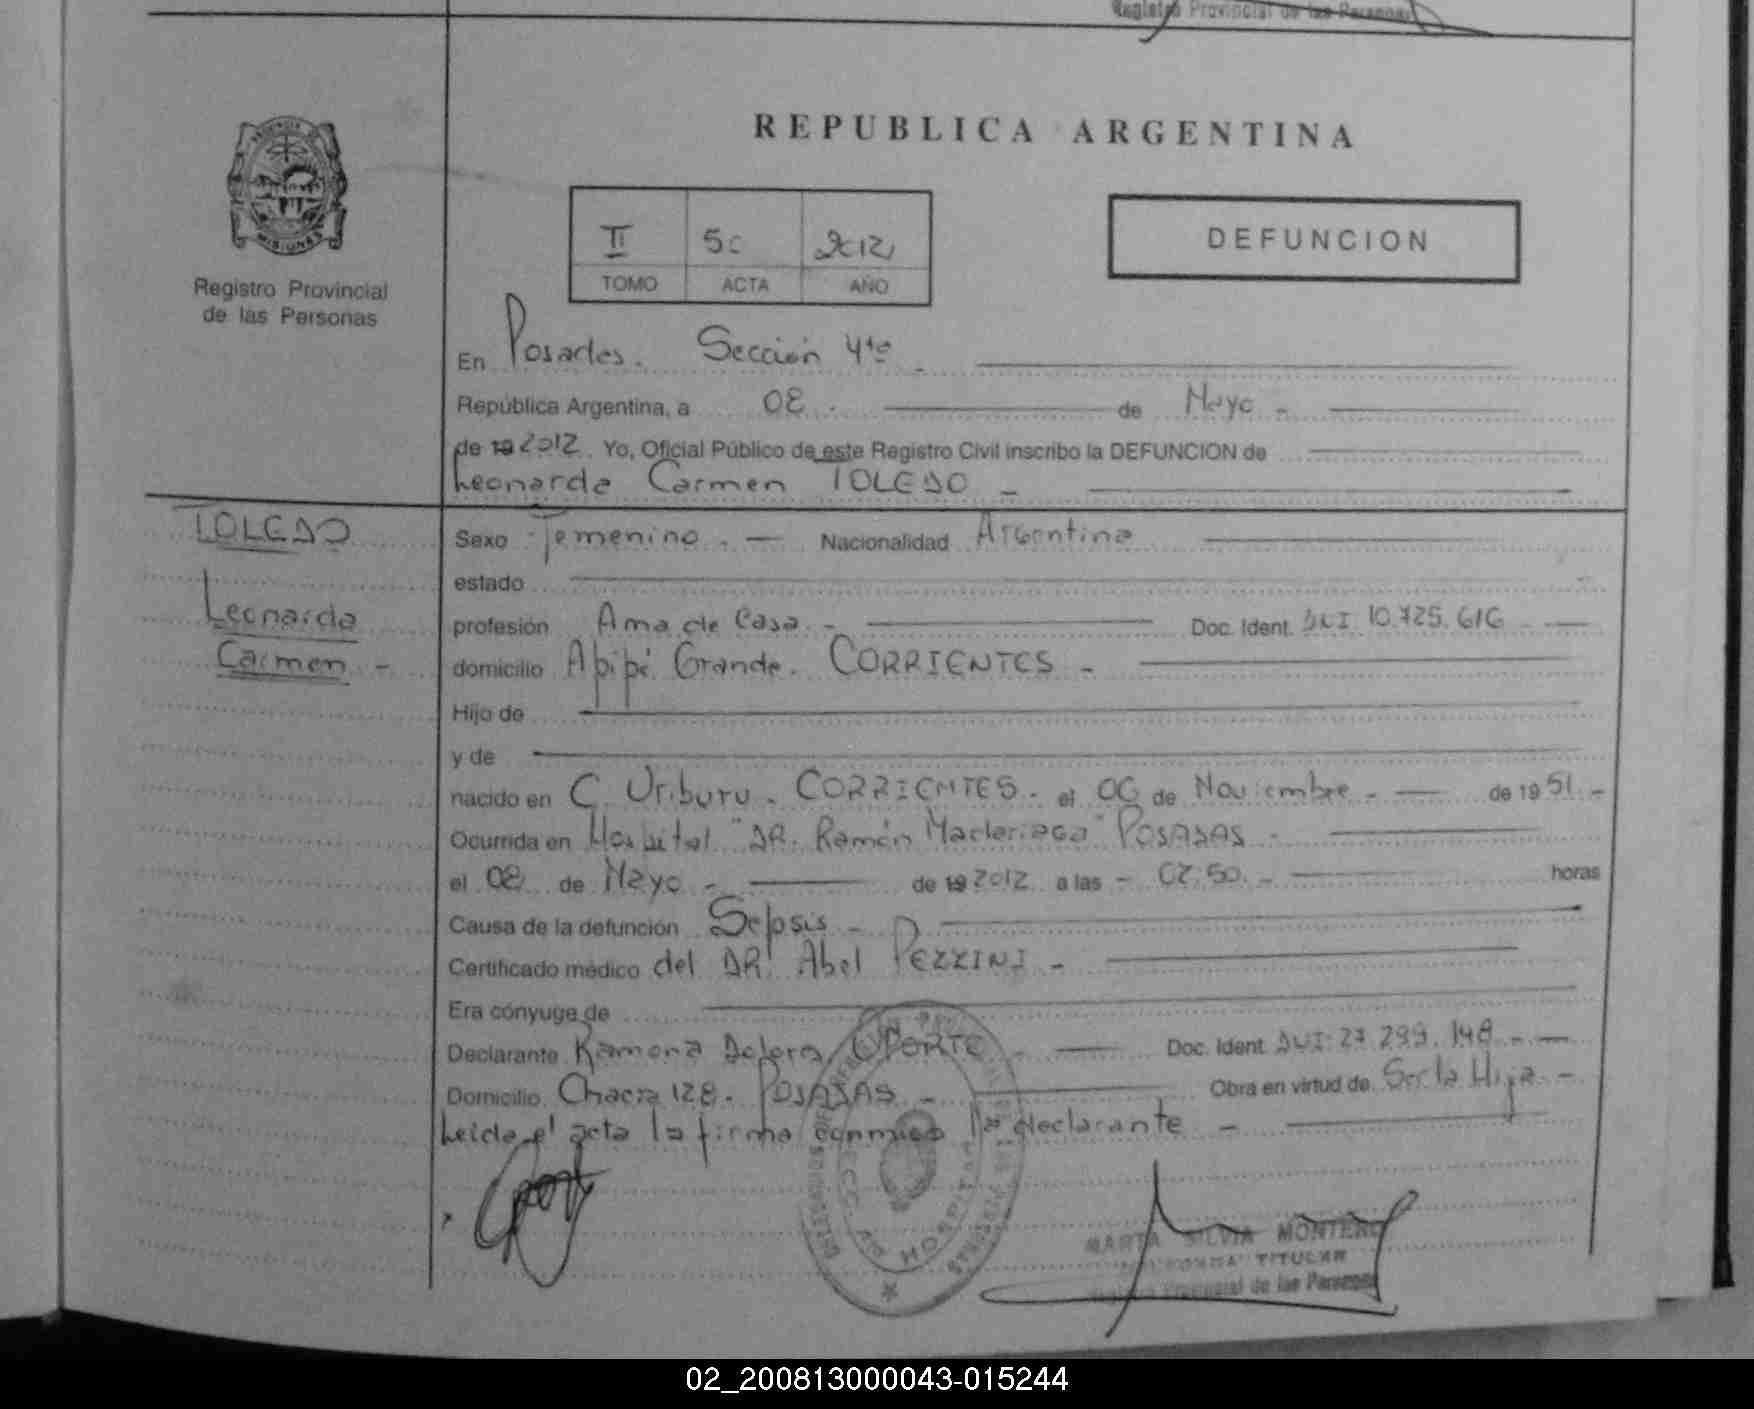 Registro Provincial de las Personas
REPUBLICA ARGENTINA
MISIONES
Registro Provincial
de las Personas
II 50 2012
TOMO ACTA AÑO
DEFUNCION
En Posadas. Sección 4ta -
República Argentina, a 08. de Mayo -
de 19 2012. Yo, Oficial Público de este Registro Civil inscribo la DEFUNCION de
Leonarda Carmen TOLEDO -
TOLEDO
Leonarda
Carmen -
Sexo Femenino. - Nacionalidad Argentina
estado
profesión Ama de Casa. - Doc. Ident. DNI. 10.725.616 -
domicilio Apipé Grande. CORRIENTES -
Hijo de
y de
nacido en C. Uriburu. CORRIENTES. el 06 de Noviembre - de 19 51. -
Ocurrida en Hospital "DR. Ramón Madariaga" POSADAS -
el 08 de Mayo - de 19 2012 a las - 07:50. - horas
Causa de la defunción Sepsis -
Certificado médico del DR. Abel PEZZINI -
Era cónyuge de
Declarante Ramona Dolores OPORTO - Doc. Ident. DNI: 27.299.148 - -
Domicilio Chacra 128. POSADAS - Obra en virtud de Ser la Hija -
Leida el acta la firma conmigo la declarante -
MARTA SILVIA MONTERO
TITULAR
Registro Provincial de las Personas
HOSPITAL
02_200813000043-015244